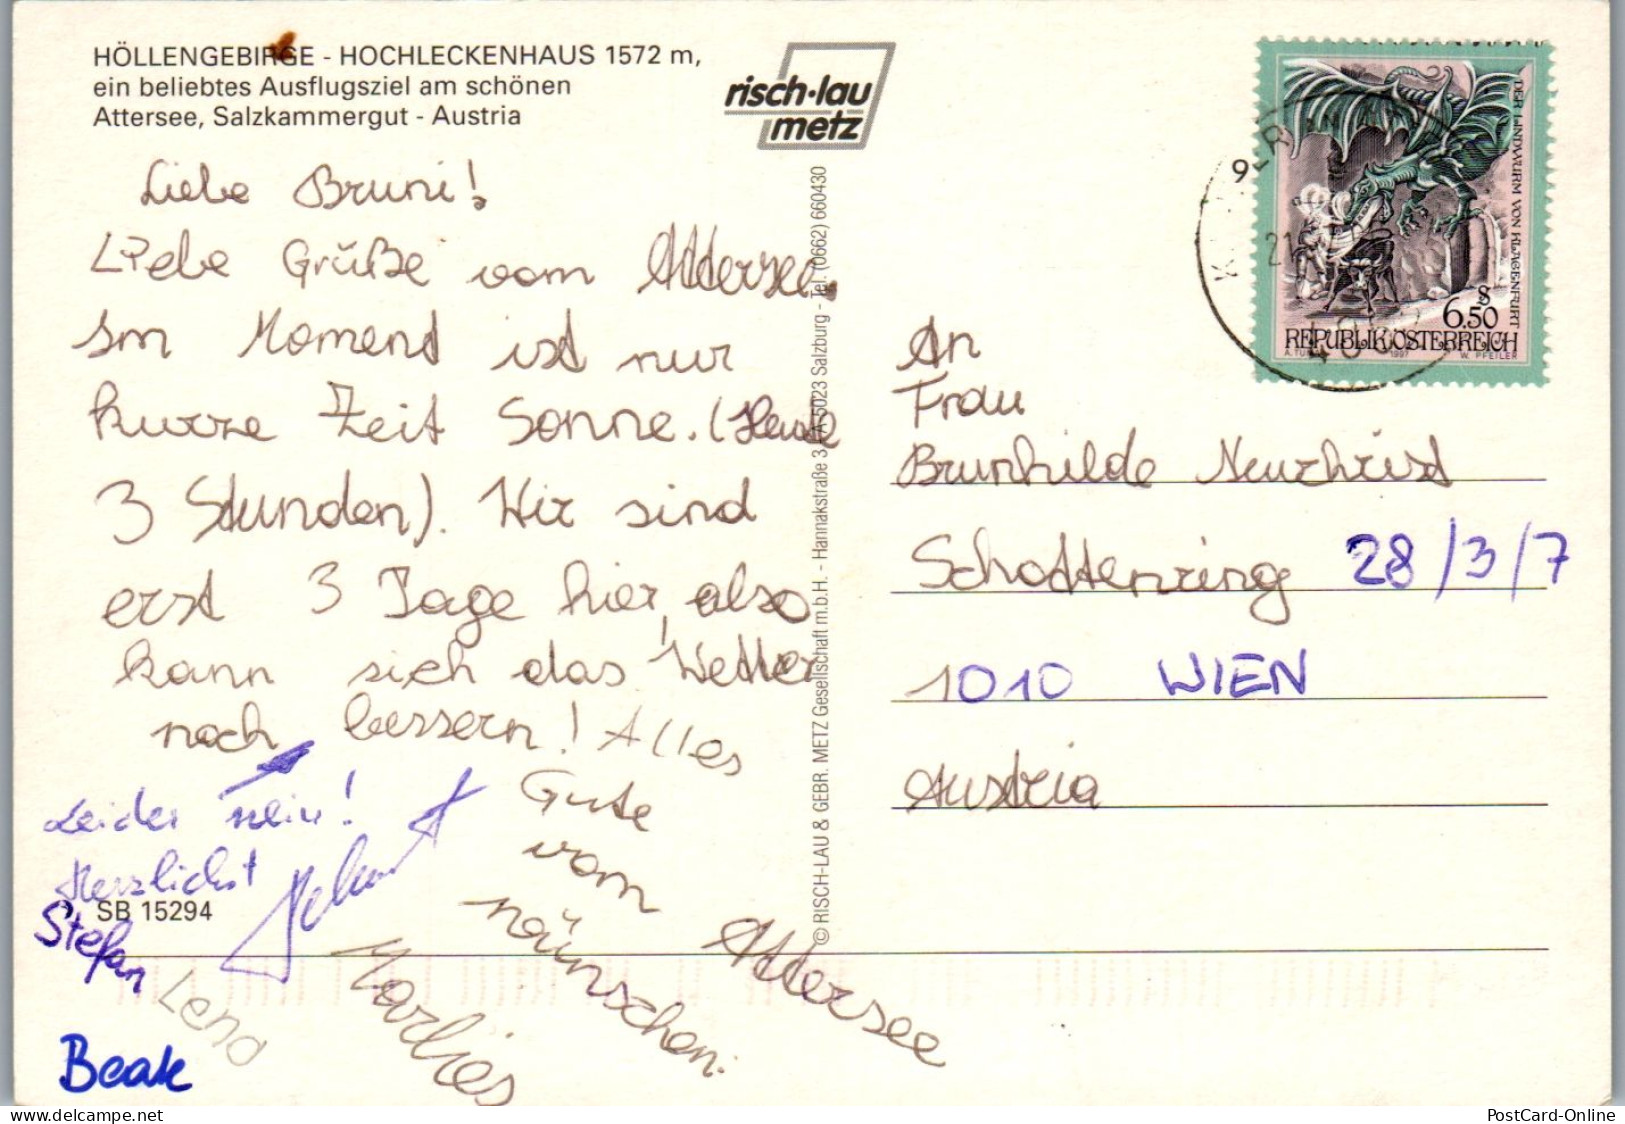 HÖLLENGEBIRGE - HOCHLECKENHAUS 1572 m,
ein beliebtes Ausflugsziel am schönen
Attersee, Salzkammergut - Austria
risch·lau
metz
Liebe Bruni!
Liebe Grüße vom Attersee.
Im Moment ist nur
kurze Zeit Sonne. (Heute
3 Stunden). Wir sind
erst 3 Tage hier, also
kann sich das Wetter
noch bessern! Alles
Gute
vom
Attersee
wünschen:
Leider nein!
Herzlichst
SB 15294
Stefan
Lena
Marlies
Beate
© RISCH-LAU & GEBR. METZ Gesellschaft m.b.H. - Hannakstraße 3, A-5023 Salzburg - Tel. (0662) 660430
DER LINDWURM VON KLAGENFURT
6.50
REPUBLIK ÖSTERREICH
1997
W. PFEILER
An
Frau
Brunhilde Neuchrist
Schottenring 28/3/7
1010 WIEN
Austria
PostCard-Online
www.delcampe.net